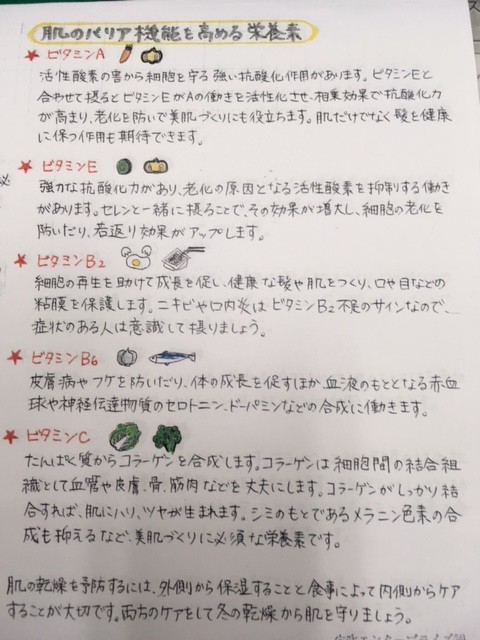 肌のバリア機能を高める栄養素
★ビタミンA
活性酸素の害から細胞を守る強い抗酸化作用があります。ビタミンEと
合わせて摂るとビタミンEがAの働きを活性化させ、相乗効果で抗酸化力
が高まり、老化を防いで美肌づくりにも役立ちます。肌だけでなく髪を健康
に保つ作用も期待できます。
★ビタミンE
強力な抗酸化力があり、老化の原因となる活性酸素を抑制する働き
があります。セレンと一緒に摂ることで、その効果が増大し、細胞の老化を
防いだり、若返り効果がアップします。
★ビタミンB2
細胞の再生を助けて成長を促し、健康な髪や肌をつくり、口や目などの
粘膜を保護します。ニキビや口内炎はビタミンB2不足のサインなので、
症状のある人は意識して摂りましょう。
★ビタミンB6
皮膚病やフケを防いだり、体の成長を促すほか、血液のもととなる赤血
球や神経伝達物質のセロトニン、ドーパミンなどの合成に働きます。
★ビタミンC
たんぱく質からコラーゲンを合成します。コラーゲンは細胞間の結合組
織として血管や皮膚、骨、筋肉などを丈夫にします。コラーゲンがしっかり結
合すれば、肌にハリ、ツヤが生まれます。シミのもとであるメラニン色素の合
成も抑えるなど、美肌づくりに必須な栄養素です。
肌の乾燥を予防するには、外側から保湿することと食事によって内側からケア
することが大切です。両方のケアをして冬の乾燥から肌を守りましょう。